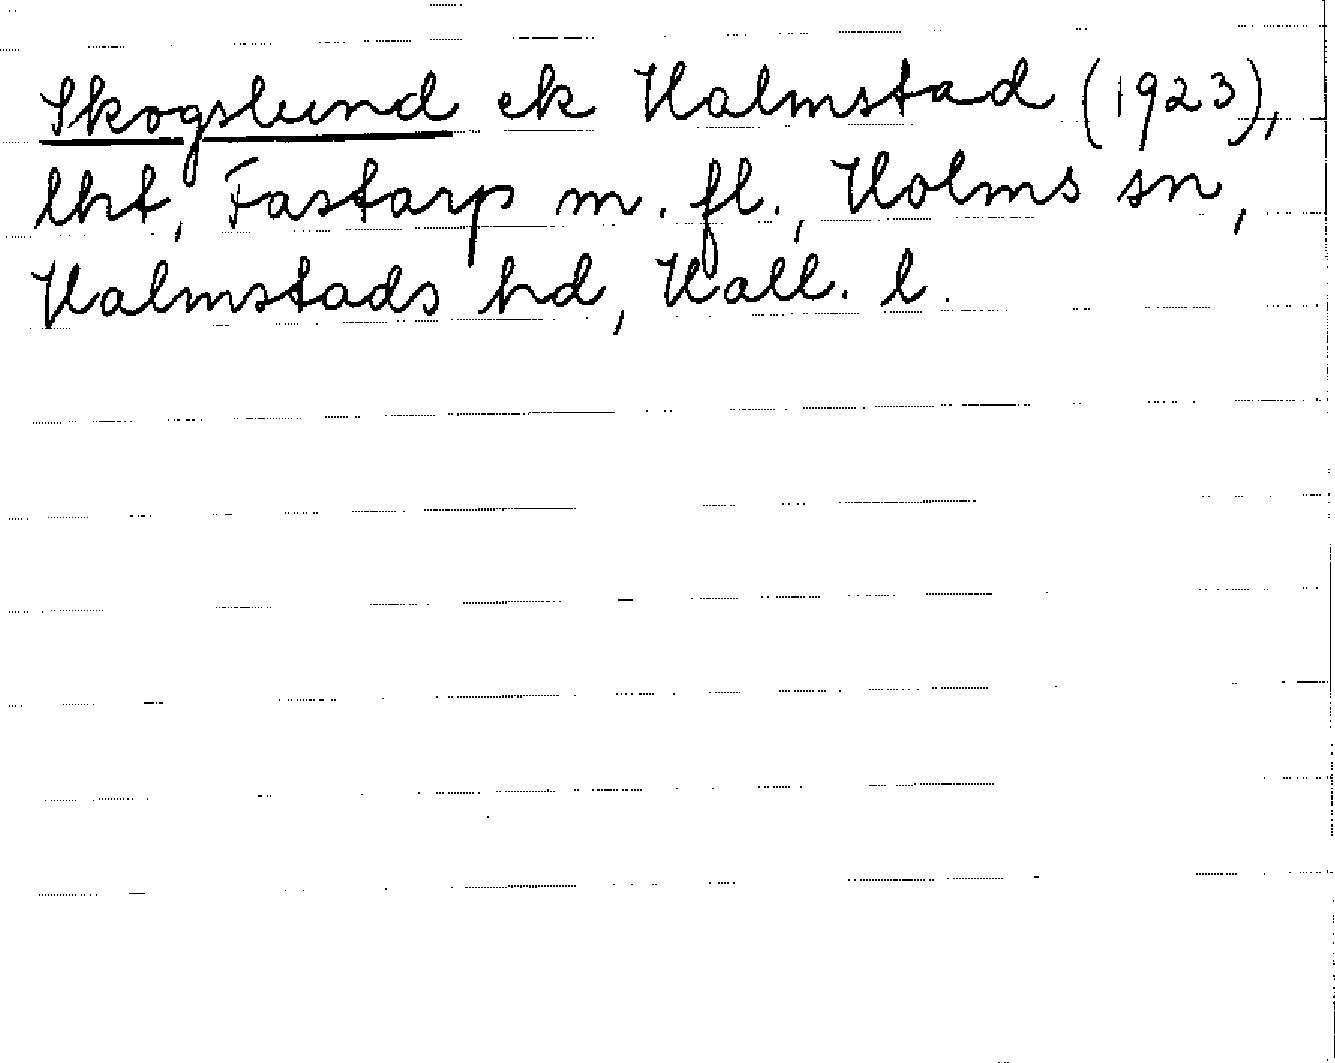 Skogslund ek Halmstad (1923),
lht, Fastarp m. fl., Holms sn,
Halmstads hd, Hall. l.